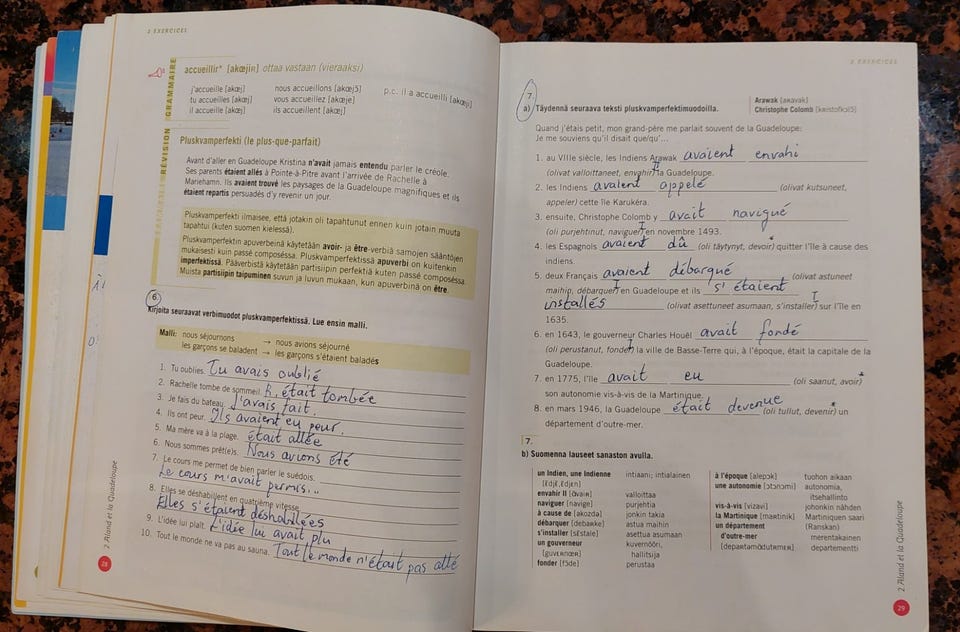 2 EXERCICES
GRAMMAIRE
accueillir* [akœjiʀ] ottaa vastaan (vieraaksi)
j'accueille [akœj] nous accueillons [akœjɔ̃] p.c. il a accueilli [akœji]
tu accueilles [akœj] vous accueillez [akœje]
il accueille [akœj] ils accueillent [akœj]
RÉVISION
Pluskvamperfekti (le plus-que-parfait)
Avant d'aller en Guadeloupe Kristina n'avait jamais entendu parler le créole.
Ses parents étaient allés à Pointe-à-Pitre avant l'arrivée de Rachelle à
Mariehamn. Ils avaient trouvé les paysages de la Guadeloupe magnifiques et ils
étaient repartis persuadés d'y revenir un jour.
Pluskvamperfekti ilmaisee, että jotakin oli tapahtunut ennen kuin jotain muuta
tapahtui (kuten suomen kielessä).
Pluskvamperfektin apuverbeinä käytetään avoir- ja être-verbiä samojen sääntöjen
mukaisesti kuin passé composéssa. Pluskvamperfektissä apuverbi on kuitenkin
imperfektissä. Pääverbistä käytetään partisiipin perfektiä kuten passé composéssa.
Muista partisiipin taipuminen suvun ja luvun mukaan, kun apuverbinä on être.
6.
Kirjoita seuraavat verbimuodot pluskvamperfektissä. Lue ensin malli.
Malli: nous séjournons → nous avions séjourné
les garçons se baladent → les garçons s'étaient baladés
1. Tu oublies. Tu avais oublié
2. Rachelle tombe de sommeil. R. était tombée
3. Je fais du bateau. J'avais fait.
4. Ils ont peur. Ils avaient eu peur.
5. Ma mère va à la plage. était allée
6. Nous sommes prêt(e)s. Nous avions été
7. Le cours me permet de bien parler le suédois.
Le cours m'avait permis...
8. Elles se déshabillent en quatrième vitesse.
Elles s'étaient déshabillées
9. L'idée lui plaît. L'idée lui avait plu
10. Tout le monde ne va pas au sauna. Tout le monde n'était pas allé
2 Aland et la Quadeloupe
28
2 EXERCICES
7.
a) Täydennä seuraava teksti pluskvamperfektimuodoilla.
Arawak [aʀavak]
Christophe Colomb [kʀistɔfkɔlɔ̃]
Quand j'étais petit, mon grand-père me parlait souvent de la Guadeloupe:
Je me souviens qu'il disait que/qu'...
1. au VIIIe siècle, les Indiens Arawak avaient envahi
(olivat valloittaneet, envahir) la Guadeloupe.
2. les Indiens avaient appelé (olivat kutsuneet,
appeler) cette île Karukéra.
3. ensuite, Christophe Colomb y avait navigué
(oli purjehtinut, naviguer) en novembre 1493.
4. les Espagnols avaient dû (oli täytynyt, devoir) quitter l'île à cause des
indiens.
5. deux Français avaient débarqué (olivat astuneet
maihin, débarquer) en Guadeloupe et ils s'étaient
installés (olivat asettuneet asumaan, s'installer) sur l'île en
1635.
6. en 1643, le gouverneur Charles Houël avait fondé
(oli perustanut, fonder) la ville de Basse-Terre qui, à l'époque, était la capitale de la
Guadeloupe.
7. en 1775, l'île avait eu (oli saanut, avoir)
son autonomie vis-à-vis de la Martinique.
8. en mars 1946, la Guadeloupe était devenue (oli tullut, devenir) un
département d'outre-mer.
7.
b) Suomenna lauseet sanaston avulla.
un Indien, une Indienne intiaani; intialainen
[ɛ̃djɛ̃, ɛ̃djɛn]
envahir II [ɑ̃vaiʀ] valloittaa
naviguer [navige] purjehtia
à cause de [akozdə] jonkin takia
débarquer [debaʀke] astua maihin
s'installer [sɛ̃stale] asettua asumaan
un gouverneur kuvernööri,
[guvɛʀnœʀ] hallitsija
fonder [fɔ̃de] perustaa
à l'époque [alepɔk] tuohon aikaan
une autonomie [ɔtɔnɔmi] autonomia,
itsehallinto
vis-à-vis [vizavi] johonkin nähden
la Martinique [maʀtinik] Martiniquen saari
un département (Ranskan)
d'outre-mer merentakainen
[depaʀtəmɑ̃dutʀmɛʀ] departementti
2 Aland et la Quadeloupe
29